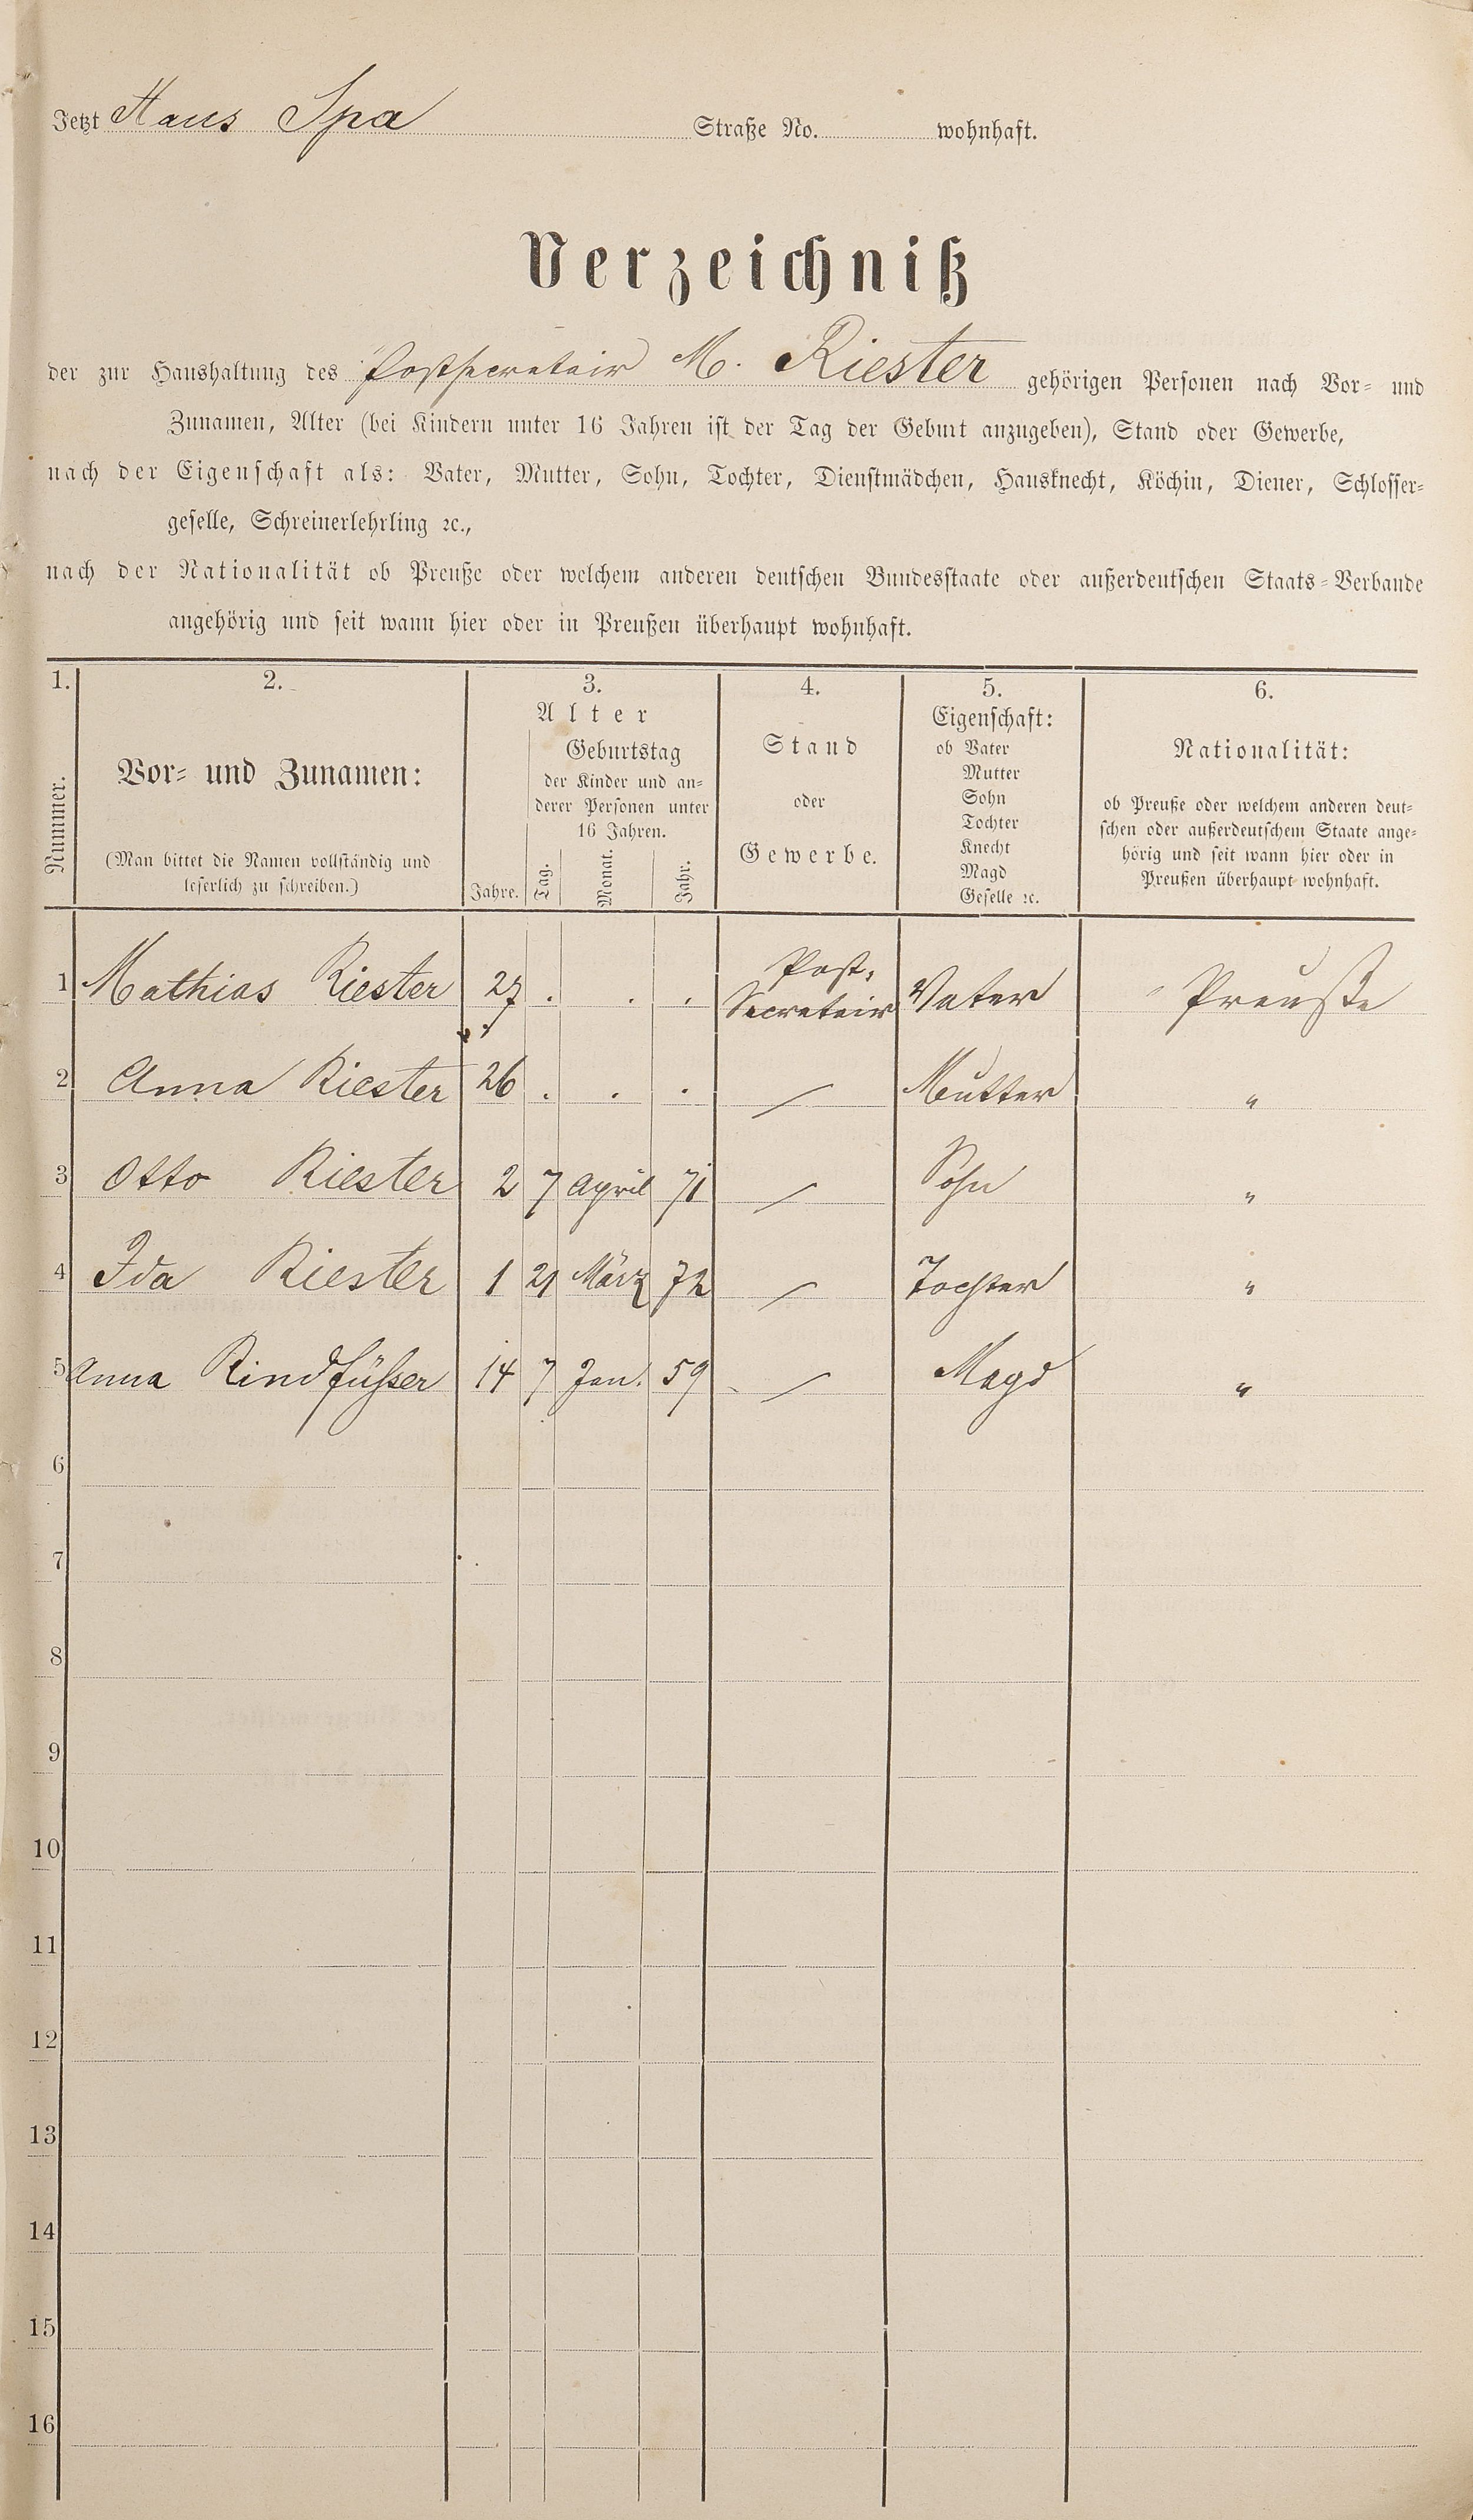 Jetzt Haus Spa Straße No. wohnhaft.
Verzeichniß
der zur Haushaltung des Postsecretair M. Riester gehörigen Personen nach Vor- und
Zunamen, Alter (bei Kindern unter 16 Jahren ist der Tag der Geburt anzugeben), Stand oder Gewerbe,
nach der Eigenschaft als: Vater, Mutter, Sohn, Tochter, Dienstmädchen, Hausknecht, Köchin, Diener, Schlosser-
geselle, Schreinerlehrling ꝛc.,
nach der Nationalität ob Preuße oder welchem anderen deutschen Bundesstaate oder außerdeutschen Staats-Verbande
angehörig und seit wann hier oder in Preußen überhaupt wohnhaft.
1. 2. 3. 4. 5. 6.
Nummer.
Vor- und Zunamen:
(Man bittet die Namen vollständig und
leserlich zu schreiben.)
Alter
Jahre.
Geburtstag
der Kinder und an-
derer Personen unter
16 Jahren.
Tag. Monat. Jahr.
Stand
oder
Gewerbe.
Eigenschaft:
ob Vater
Mutter
Sohn
Tochter
Knecht
Magd
Geselle ꝛc.
Nationalität:
ob Preuße oder welchem anderen deut-
schen oder außerdeutschem Staate ange-
hörig und seit wann hier oder in
Preußen überhaupt wohnhaft.
1 Mathias Riester 27 . . . Post-Secretair Vater Preuße
2 Anna Riester 26 . . . / Mutter "
3 Otto Riester 2 7 April 71 / Sohn "
4 Ida Riester 1 21 März 72 / Tochter "
5 Anna Rindfüßer 14 7 Jan. 59 / Magd "
6
7
8
9
10
11
12
13
14
15
16